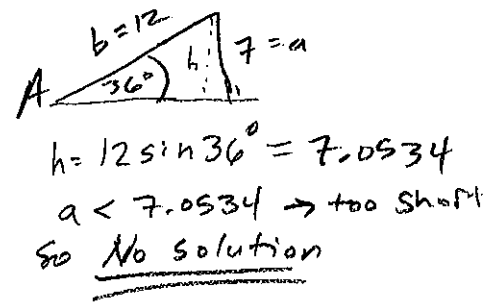 b=12
h
7=a
A
36°
h= 12 sin 36° = 7.0534
a < 7.0534 → too short
so No solution